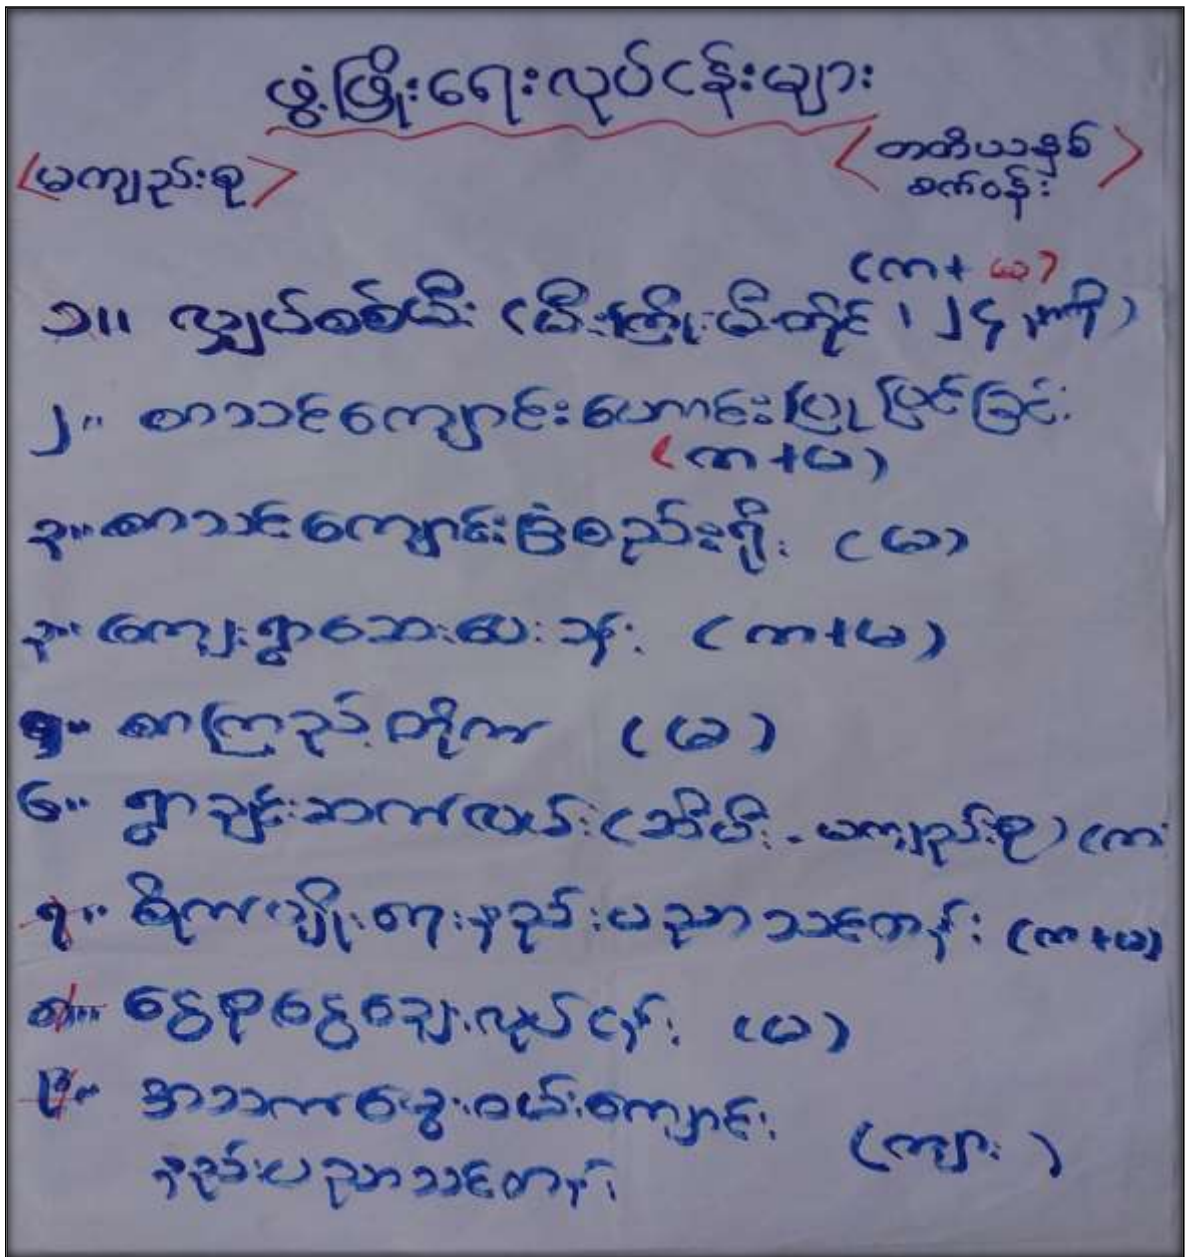 ဖွံ့ဖြိုးရေးလုပ်ငန်းများ
<မကျည်းစု> <တတိယနှစ်
စက်ဝန်း>
(က+ မ)
၁။ လျှပ်စစ်မီး (မီးကြိုး မီးတိုင် ၊ ၂၄
၂။ စာသင်ကျောင်းဟောင်းပြုပြင်ခြင်း
(က+မ)
၃။ စာသင်ကျောင်းခြံစည်းရိုး (မ)
၄။ ကျေးရွာဆေးပေးခန်း (က+မ)
၅။ စာကြည့်တိုက် (မ)
၆။ ရွာချင်းဆက်လမ်း ( - မကျည်းစု) (က
၇။ စိုက်ပျိုးရေးနည်းပညာသင်တန်း (က+မ)
၈။ ငွေစုငွေချေးလုပ်ငန်း (မ)
၉။ အသက်မွေးဝမ်းကျောင်း
နည်းပညာသင်တန်း (ကျား)